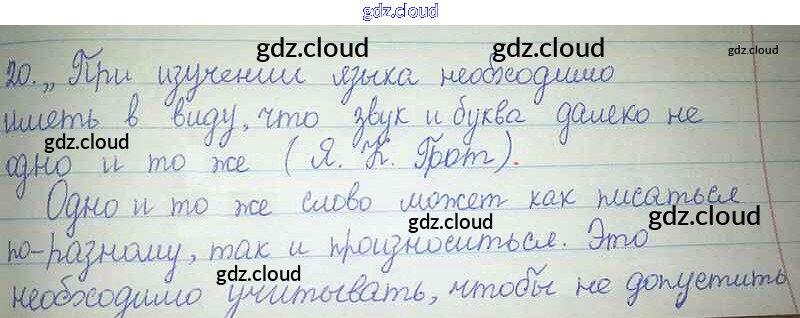 gdz.cloud
gdz.cloud gdz.cloud gdz.cloud
20. „При изучении языка необходимо
иметь в виду, что звук и буква далеко не
gdz.cloud gdz.cloud gdz.cloud
одно и то же (Я. К. Грот).
Одно и то же слово может как писаться
gdz.cloud gdz.cloud gdz.cloud
по-разному, так и произноситься. Это
gdz.cloud gdz.cloud gdz.cloud
необходимо учитывать, чтобы не допустить